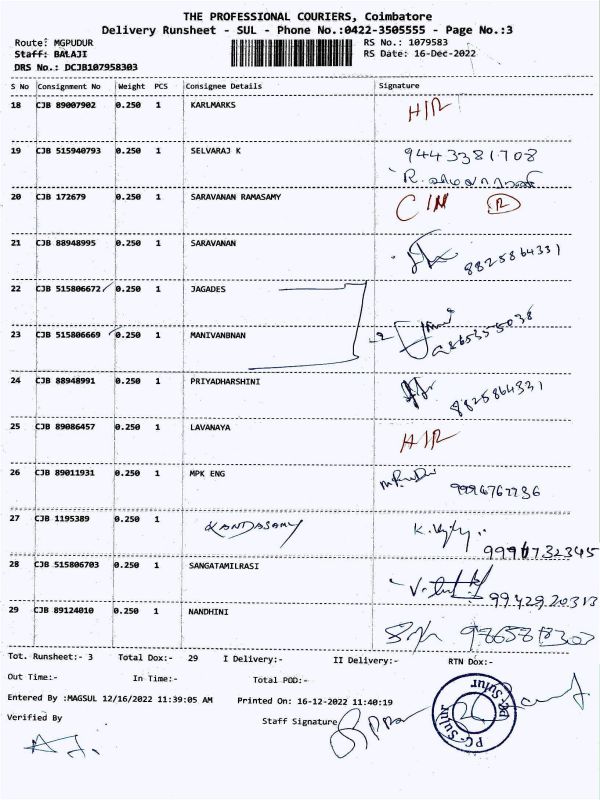 THE PROFESSIONAL COURIERS, Coimbatore
Delivery Runsheet - SUL - Phone No.:0422-3505555 - Page No.:3
Route: MGPUDUR RS No.: 1079583
Staff: BALAJI RS Date: 16-Dec-2022
DRS No.: DCJB107958303
S No Consignment No Weight PCS Consignee Details Signature
18 CJB 89007902 0.250 1 KARLMARKS
19 CJB 515940793 0.250 1 SELVARAJ K 9443381708
20 CJB 172679 0.250 1 SARAVANAN RAMASAMY
21 CJB 88948995 0.250 1 SARAVANAN 8825864331
22 CJB 515806672 0.250 1 JAGADES
23 CJB 515806669 0.250 1 MANIVANBNAN
24 CJB 88948991 0.250 1 PRIYADHARSHINI 8825864331
25 CJB 89086457 0.250 1 LAVANAYA
26 CJB 89011931 0.250 1 MPK ENG
27 CJB 1195389 0.250 1 KANDASAMY
28 CJB 515806703 0.250 1 SANGATAMILRASI 9942920313
29 CJB 89124010 0.250 1 NANDHINI
Tot. Runsheet:- 3 Total Dox:- 29 I Delivery:- II Delivery:- RTN Dox:-
Out Time:- In Time:- Total POD:-
Entered By :MAGSUL 12/16/2022 11:39:05 AM Printed On: 16-12-2022 11:40:19
Verified By Staff Signature
PC-Sulur